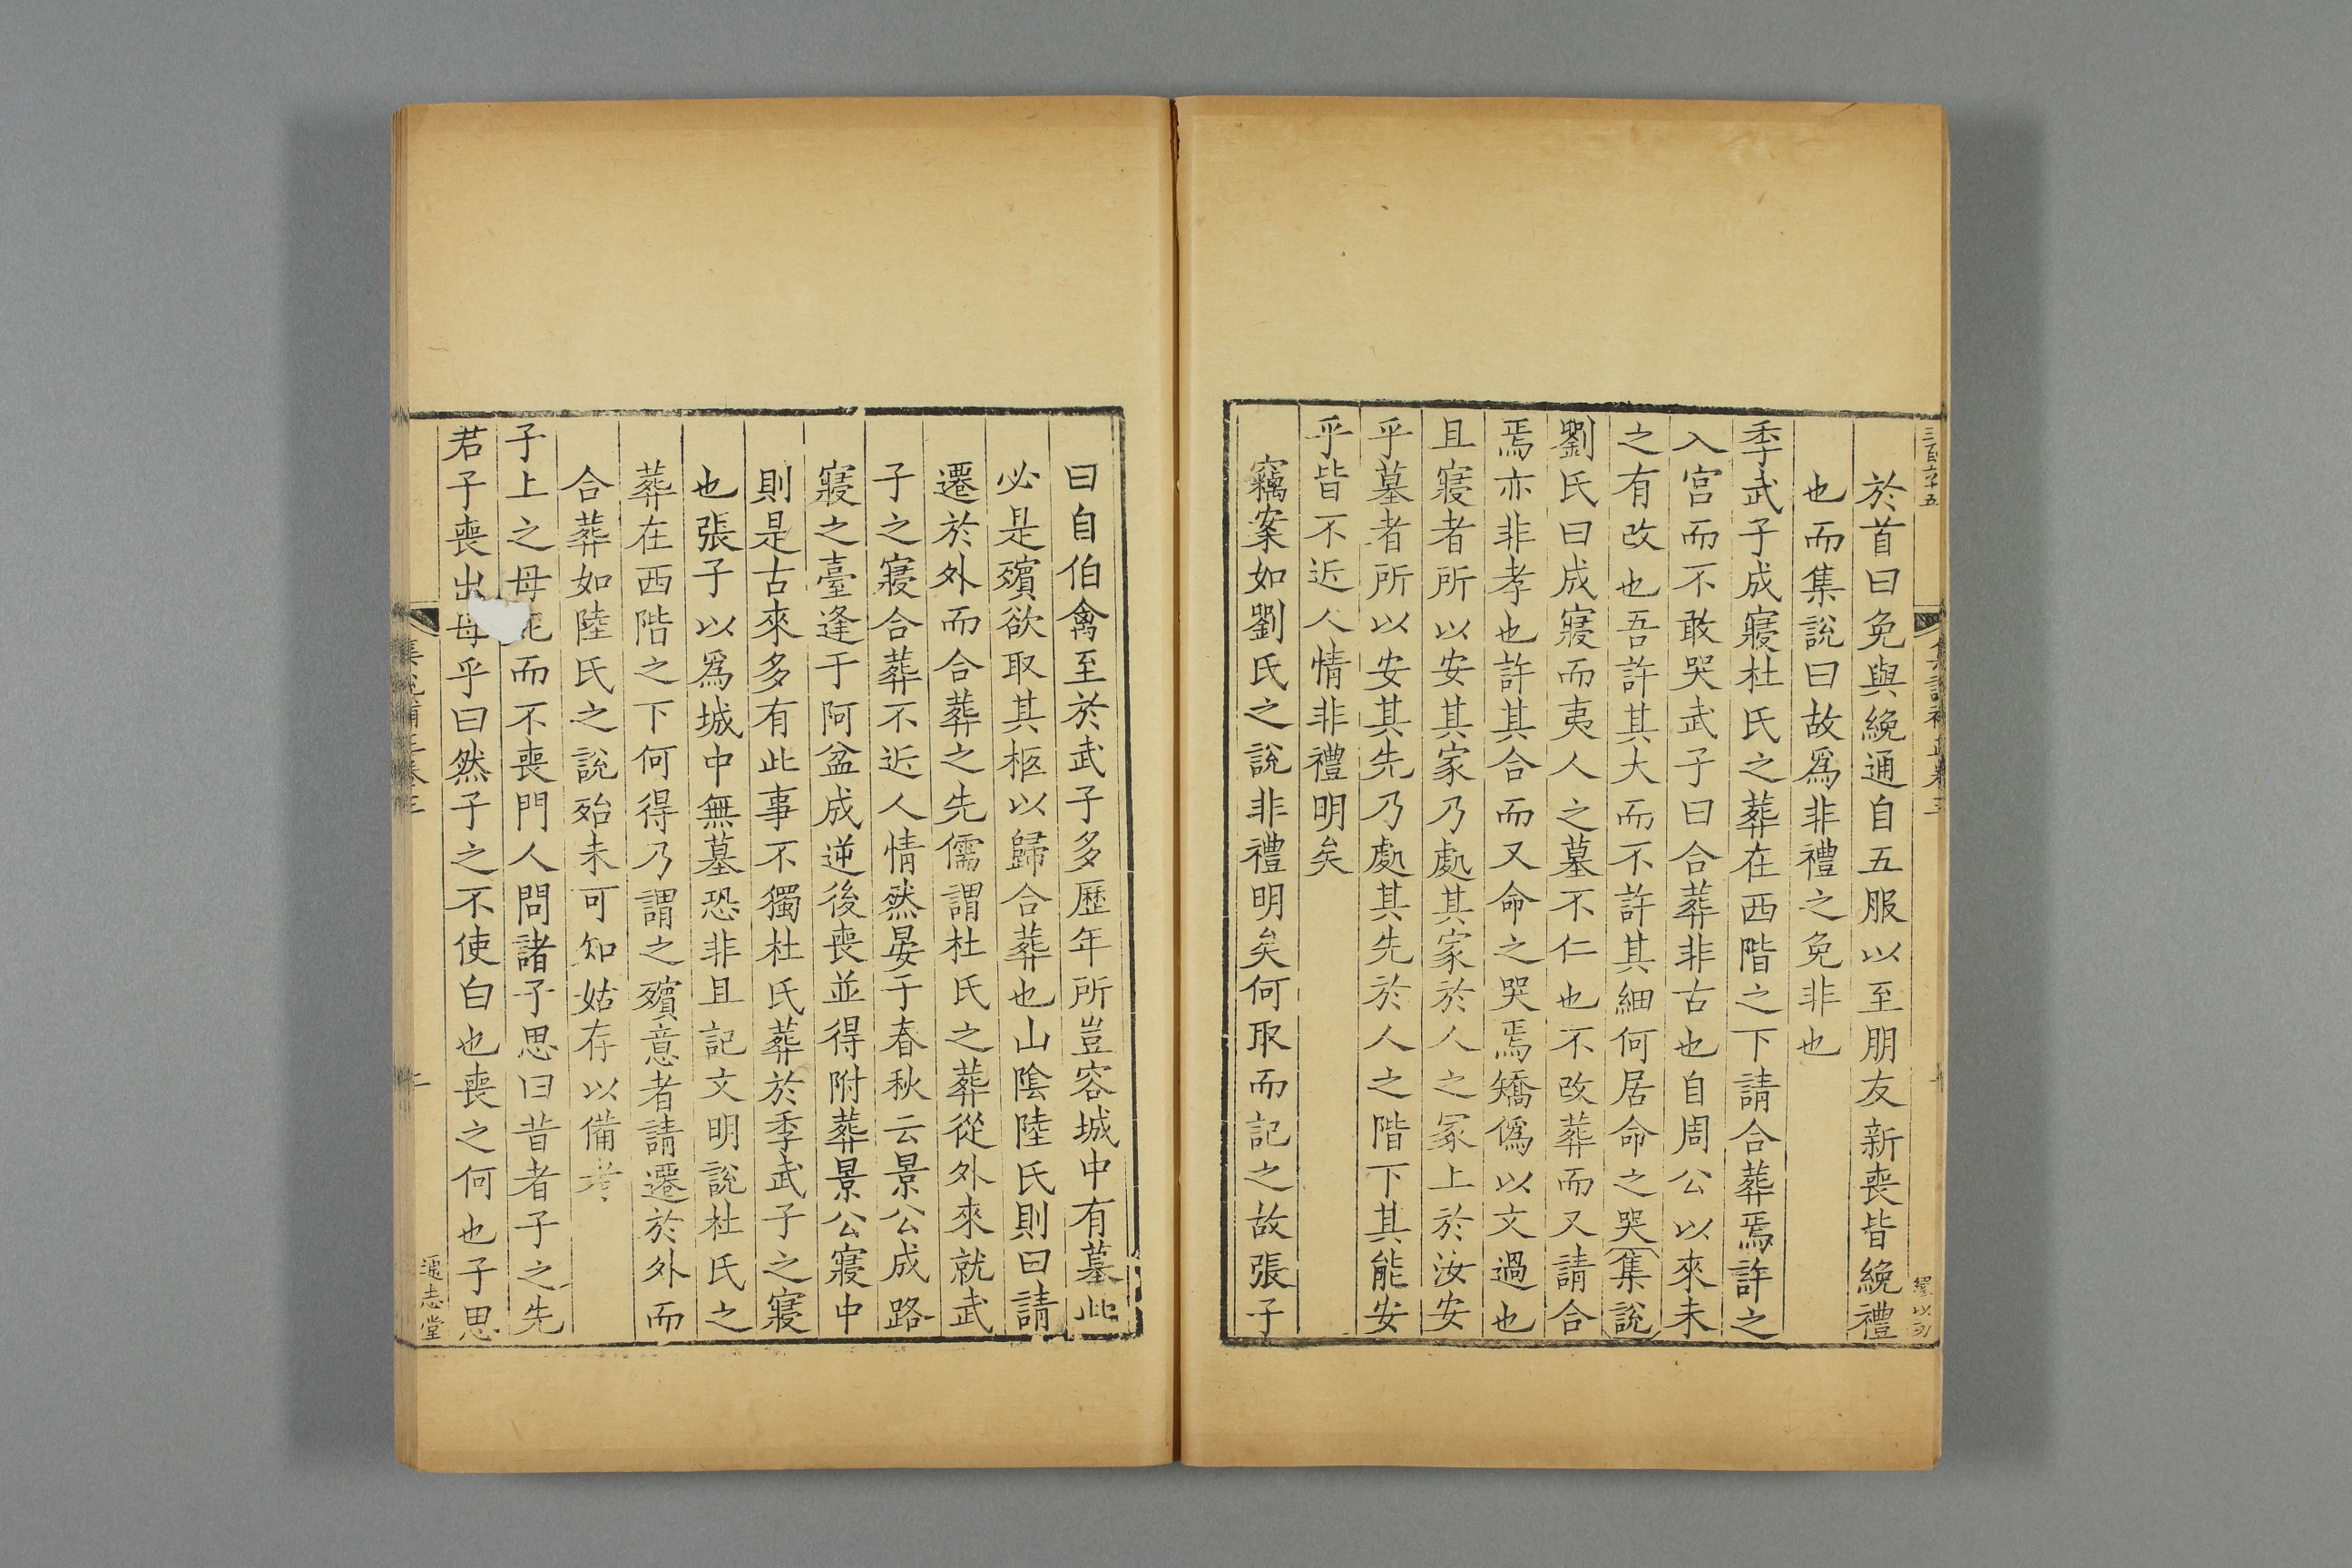 三百六十五
於首曰免與絻通自五服以至朋友新喪皆絻禮
也而集說曰故爲非禮之免非也
季武子成寢杜氏之葬在西階之下請合葬焉許之
入宮而不敢哭武子曰合葬非古也自周公以來未
之有改也吾許其大而不許其細何居命之哭集說
劉氏曰成寢而夷人之墓不仁也不改葬而又請合
焉亦非孝也許其合而又命之哭焉矯僞以文過也
且寢者所以安其家乃處其家於人之冢上於汝安
乎墓者所以安其先乃處其先於人之階下其能安
乎皆不近人情非禮明矣
竊案如劉氏之說非禮明矣何取而記之故張子
曰自伯禽至於武子多歷年所豈容城中有墓此
必是殯欲取其柩以歸合葬也山隂陸氏則曰請
遷於外而合葬之先儒謂杜氏之葬從外來就武
子之寢合葬不近人情然晏子春秋云景公成路
寢之臺逢于阿盆成逆後喪並得附葬景公寢中
則是古來多有此事不獨杜氏葬於季武子之寢
也張子以爲城中無墓恐非且記文明說杜氏之
葬在西階之下何得乃謂之殯意者請遷於外而
合葬如陸氏之說殆未可知姑存以備考
子上之母死而不喪門人問諸子思曰昔者子之先
君子喪出母乎曰然子之不使白也喪之何也子思
集說補正卷三
通志堂